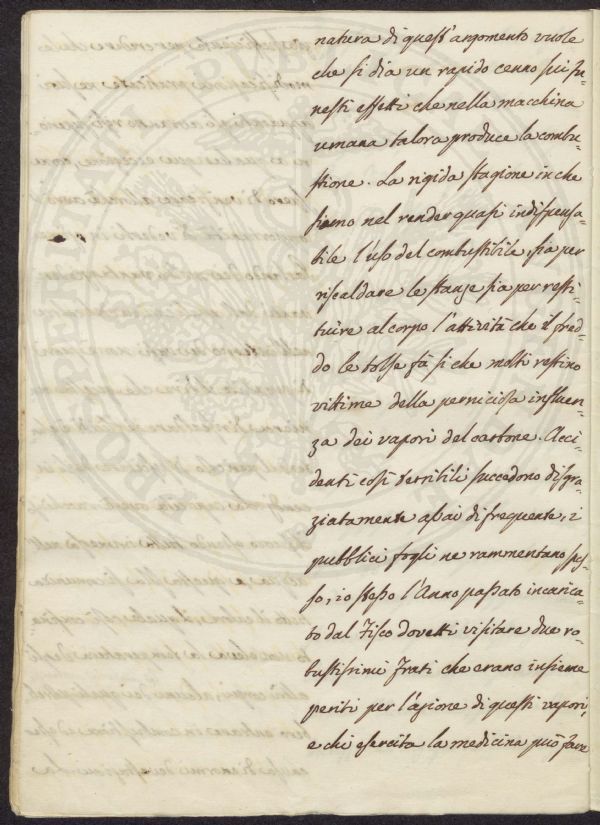 natura di quest'argomento vuole
che si dia un rapido cenno sui fu-
nesti effetti che nella macchina
umana talora produce la combu-
stione. La rigida stagione in che
siamo nel render quasi indispensa-
bile l'uso del combustibile, sia per
riscaldare le stanze sia per resti-
tuire al corpo l'attività che il fred-
do le tolse fà si che molti restino
vittime della perniciosa influen-
za dei vapori del carbone. Acci-
denti così terribili succedono disgra-
ziatamente assai di frequente, i
pubblici fogli ne rammentano spes-
so, io stesso l'Anno passato incarica-
to dal Fisco dovetti visitare due ro-
bustissimi Frati che erano insieme
periti per l'azione di questi vapori,
e chi esercita la medicina può fare